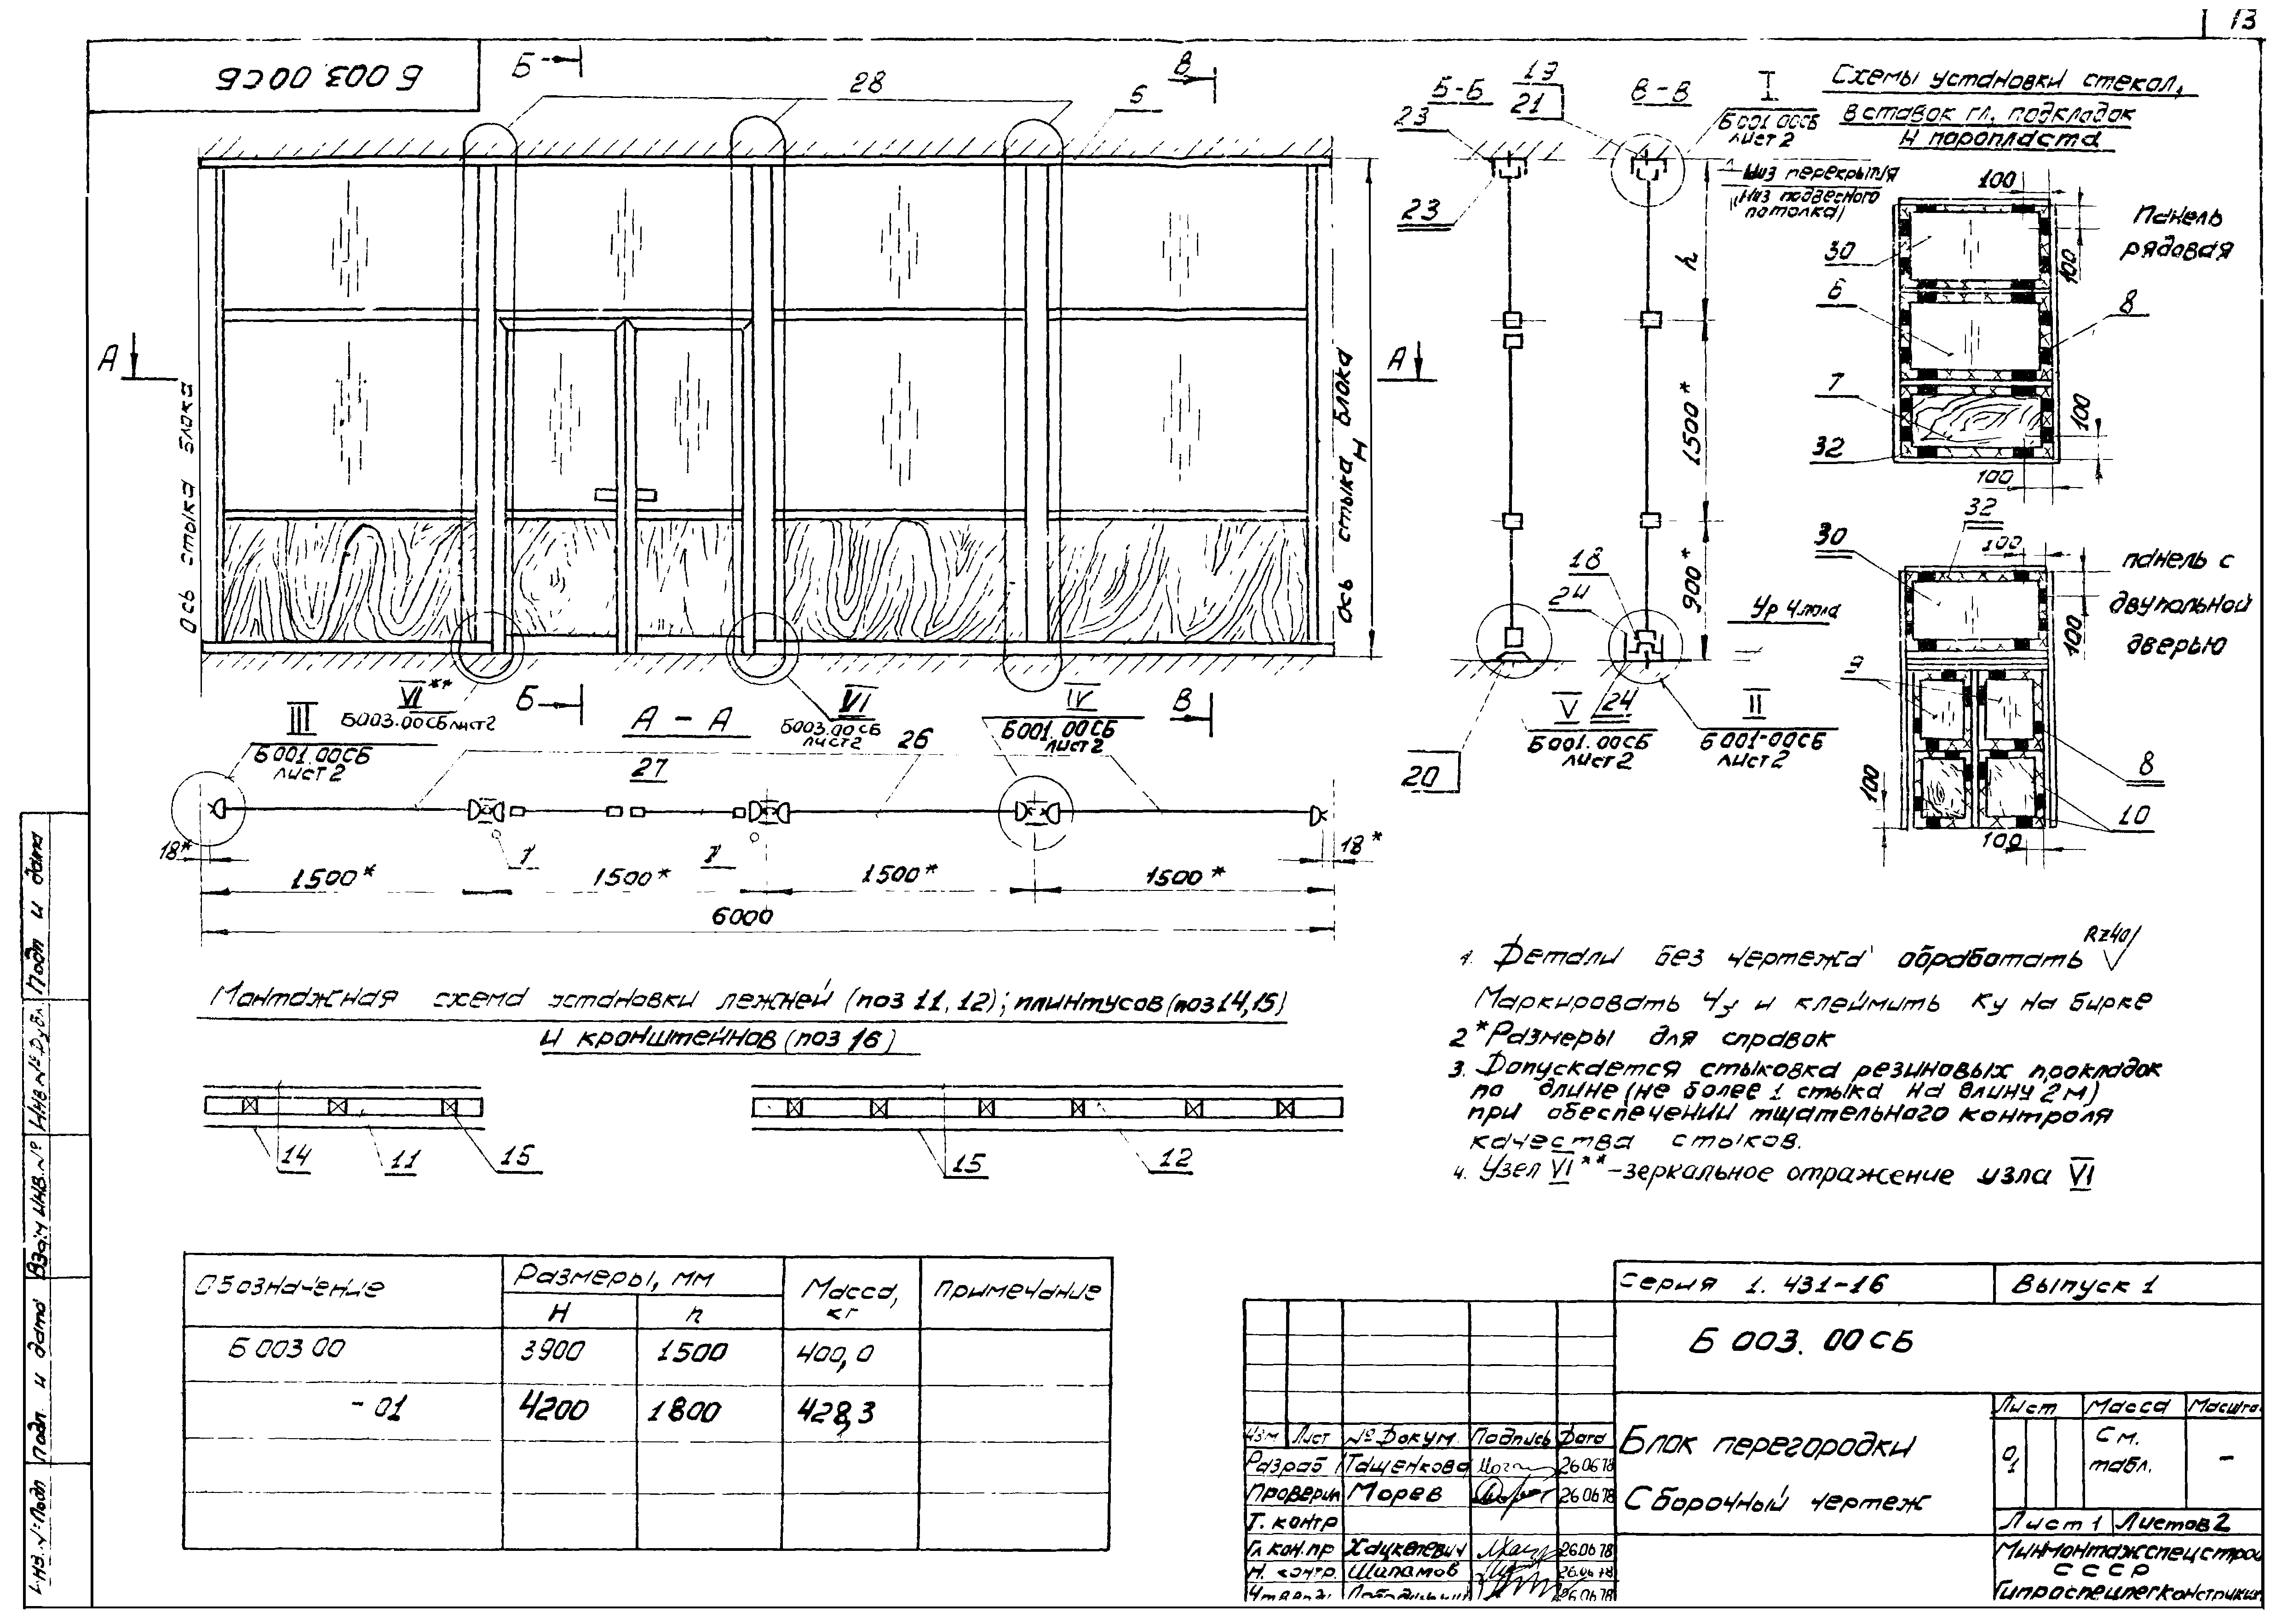 13
Б 003.00СБ
Б
В
28
Б
А
А
Ось стыка блока
Ось стыка блока
H
VI**
Б003.00СБ лист2
Б
А - А
VI
Б003.00СБ
лист2
IV
Б001.00СБ
лист2
В
III
Б001.00СБ
лист2
26
27
18*
18*
1500*
1500*
1500*
1500*
6000
Б-Б
19
21
В-В
I
Б001.00СБ
лист2
23
23
Низ перекрытия
(Низ подвесного
потолка)
h
1500*
900*
18
24
Ур ч.пола
V
Б001.00СБ
лист2
24
II
Б001-00СБ
лист2
20
Схемы установки стекол,
вставок гл, подкладок
и поропласта
100
100
Панель
рядовая
30
6
8
7
32
100
100
32
30
100
100
панель с
двупольной
дверью
9
8
10
100
100
Монтажная схема установки лежней (поз 11, 12); плинтусов (поз 14,15)
и кронштейнов (поз 16)
14
11
15
12
1. Детали без чертежа обработать Rz40
Маркировать Чу и клеймить Ку на бирке
2 *Размеры для справок
3. Допускается стыковка резиновых прокладок
по длине (не более 1 стыка на длину 2м)
при обеспечении тщательного контроля
качества стыков.
4. Узел VI** - зеркальное отражение узла VI
Обозначение
Размеры, мм
Масса,
кг
Примечание
H
h
Б 003 00
3900
1500
400,0
- 01
4200
1800
428,3
Серия 1. 431-16
Выпуск 1
Б 003. 00СБ
Блок перегородки
Сборочный чертеж
Лист
Масса
См.
табл.
-
Лист 1
Листов 2
Минмонтажспецстрой
СССР
Изм
Лист
№ Докум.
Подпись
Дата
Разраб
Тащенкова
26 06 78
Проверил
Морев
26 06 78
Т. контр
Гл кон.пр
26.06 78
Н. контр.
Шаламов
26.06 78
26.06 78
Подп и дата
Инв № Дубл
Взам инв. №
Подп. и дата
Инв. № Подп